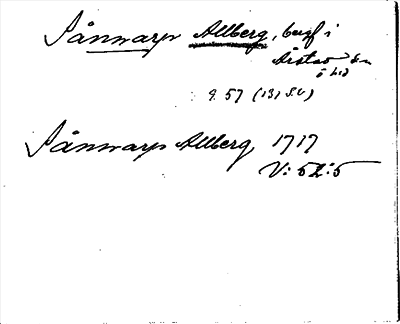 Sännarp Allberg, bugf i
Årstad
9. 57 (131 S.U.)
Sännarps Allberg, 1717
V: 52:5